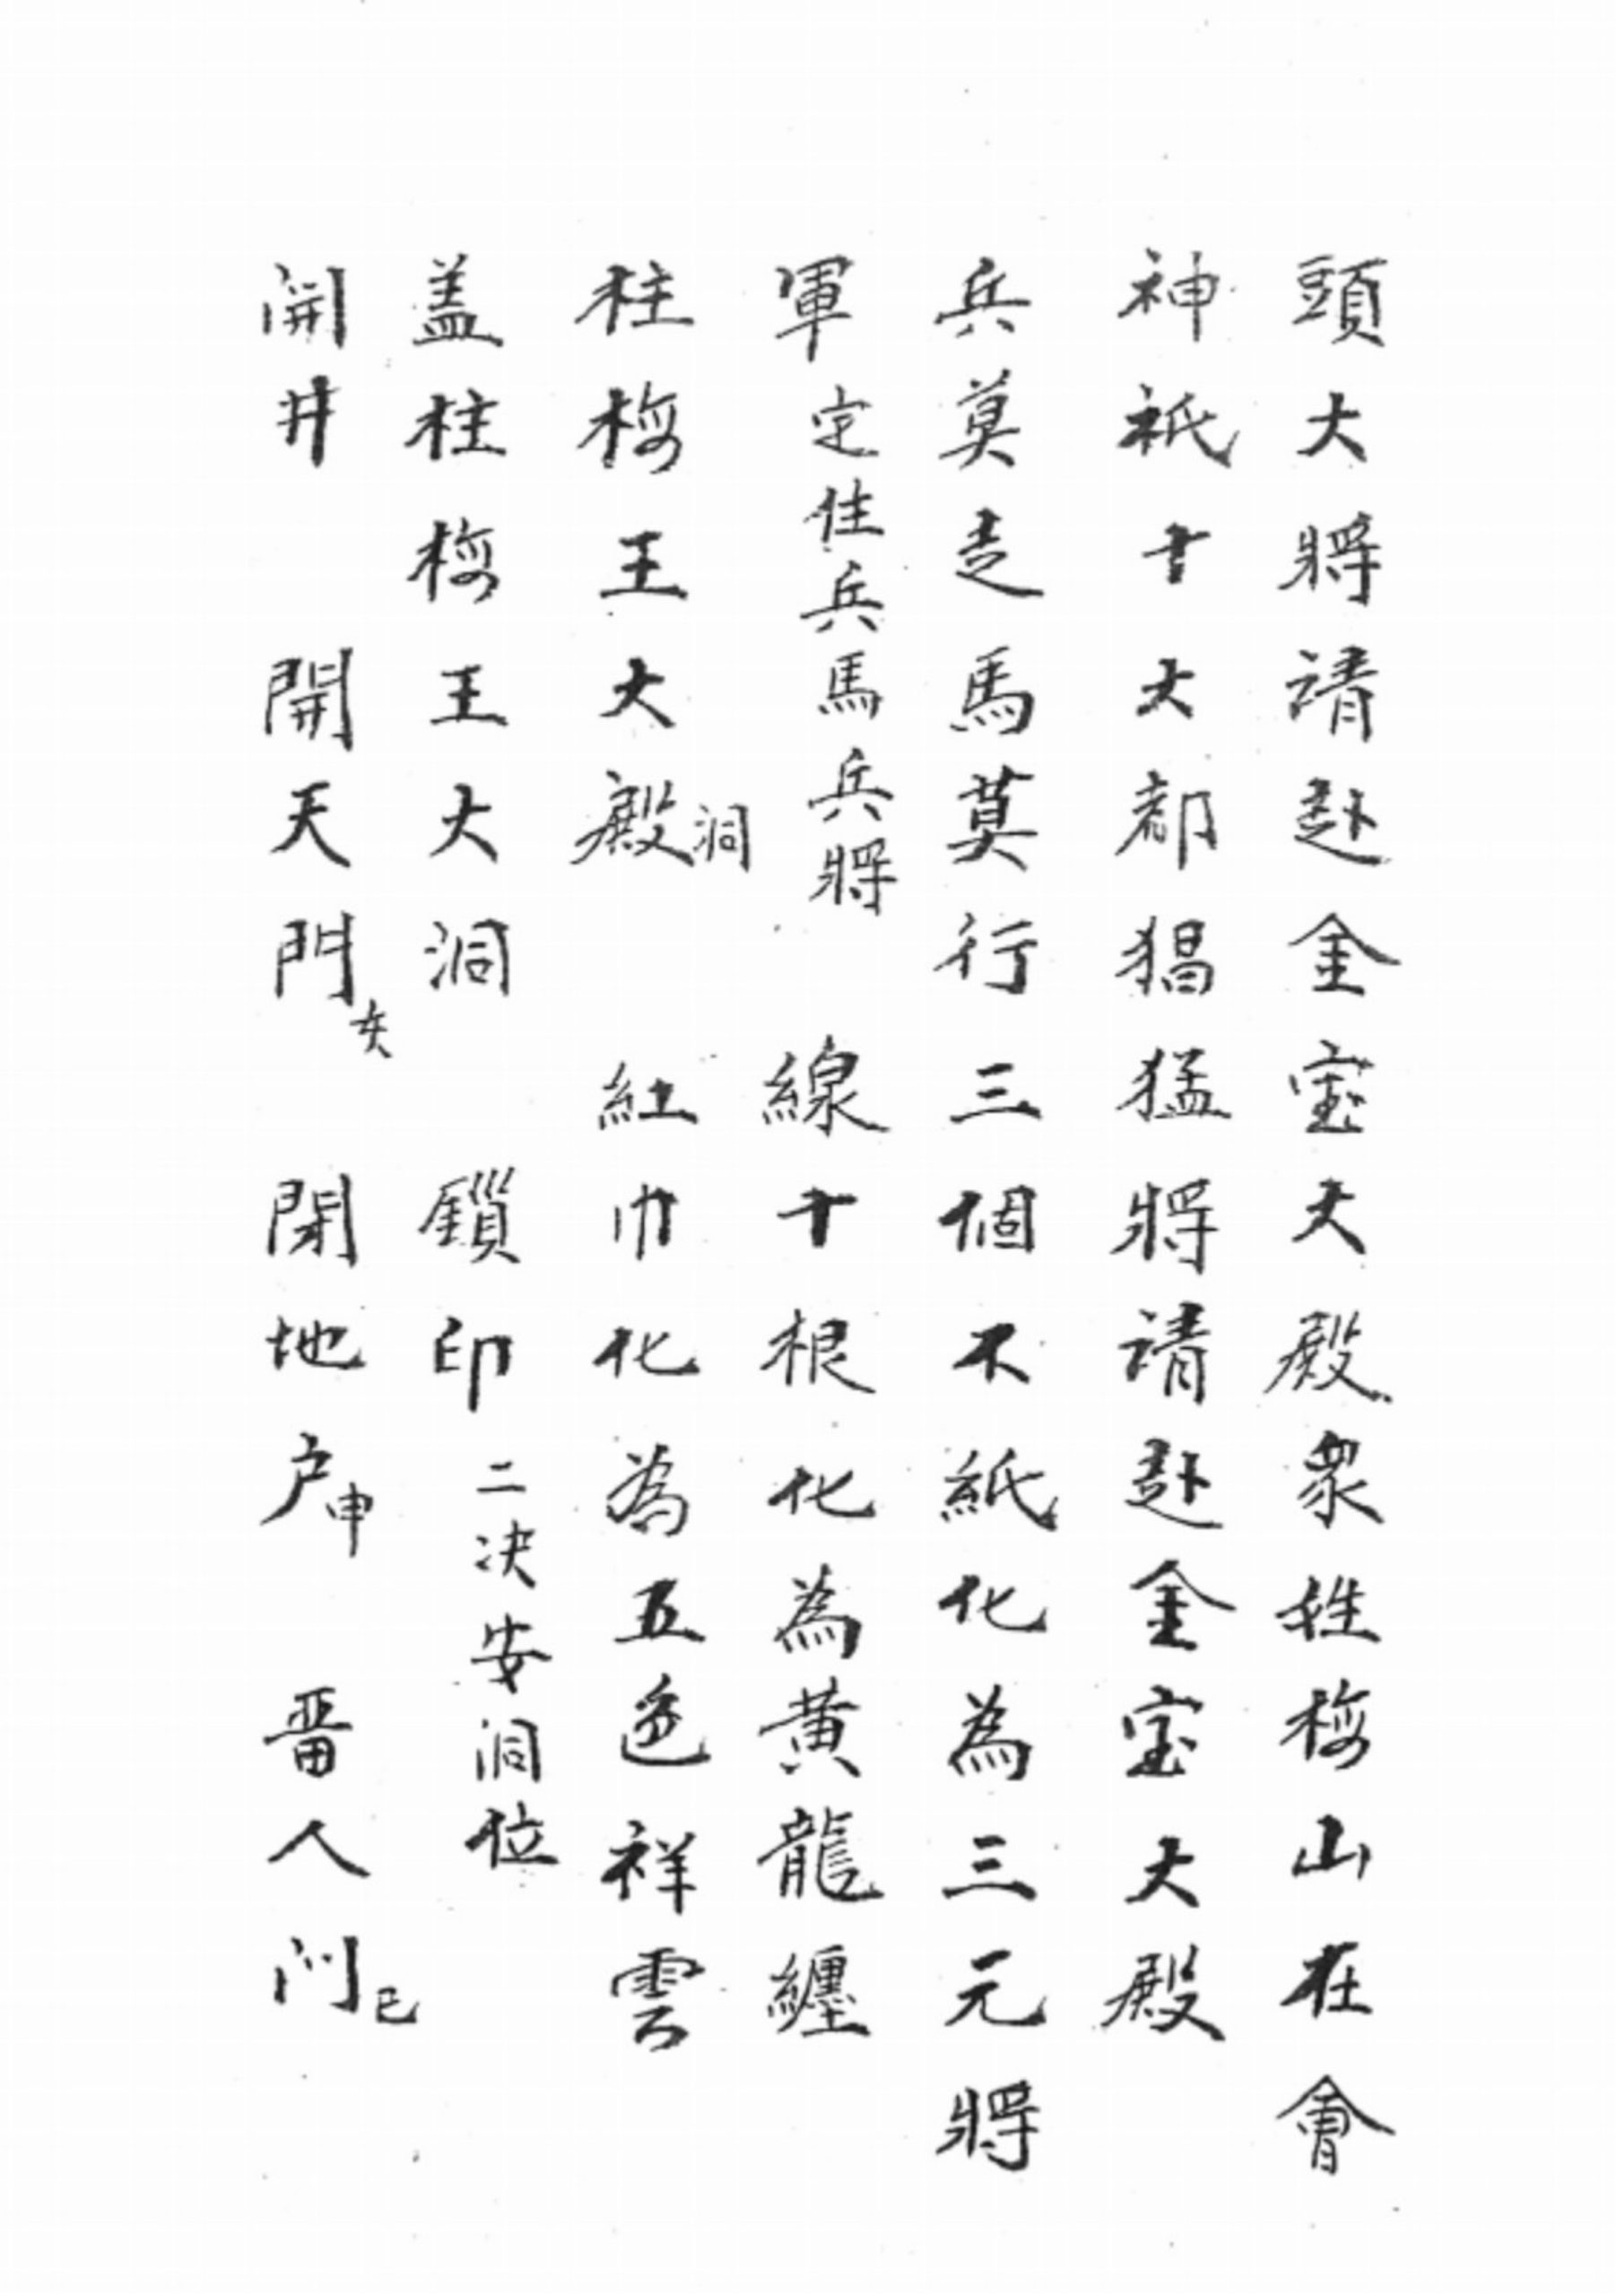 頭大將請赴金宝大殿眾姓梅山在會
神祇十大都猖猛將請赴金宝大殿
兵莫走馬莫行三個木紙化為三元將
軍定住兵馬兵將 線十根化為黃龍纏
柱梅王大殿洞 紅巾化為五色祥雲
盖柱梅王大洞 鎖印二决安洞位
開井 開天門亥 閉地户申 畱人门巳